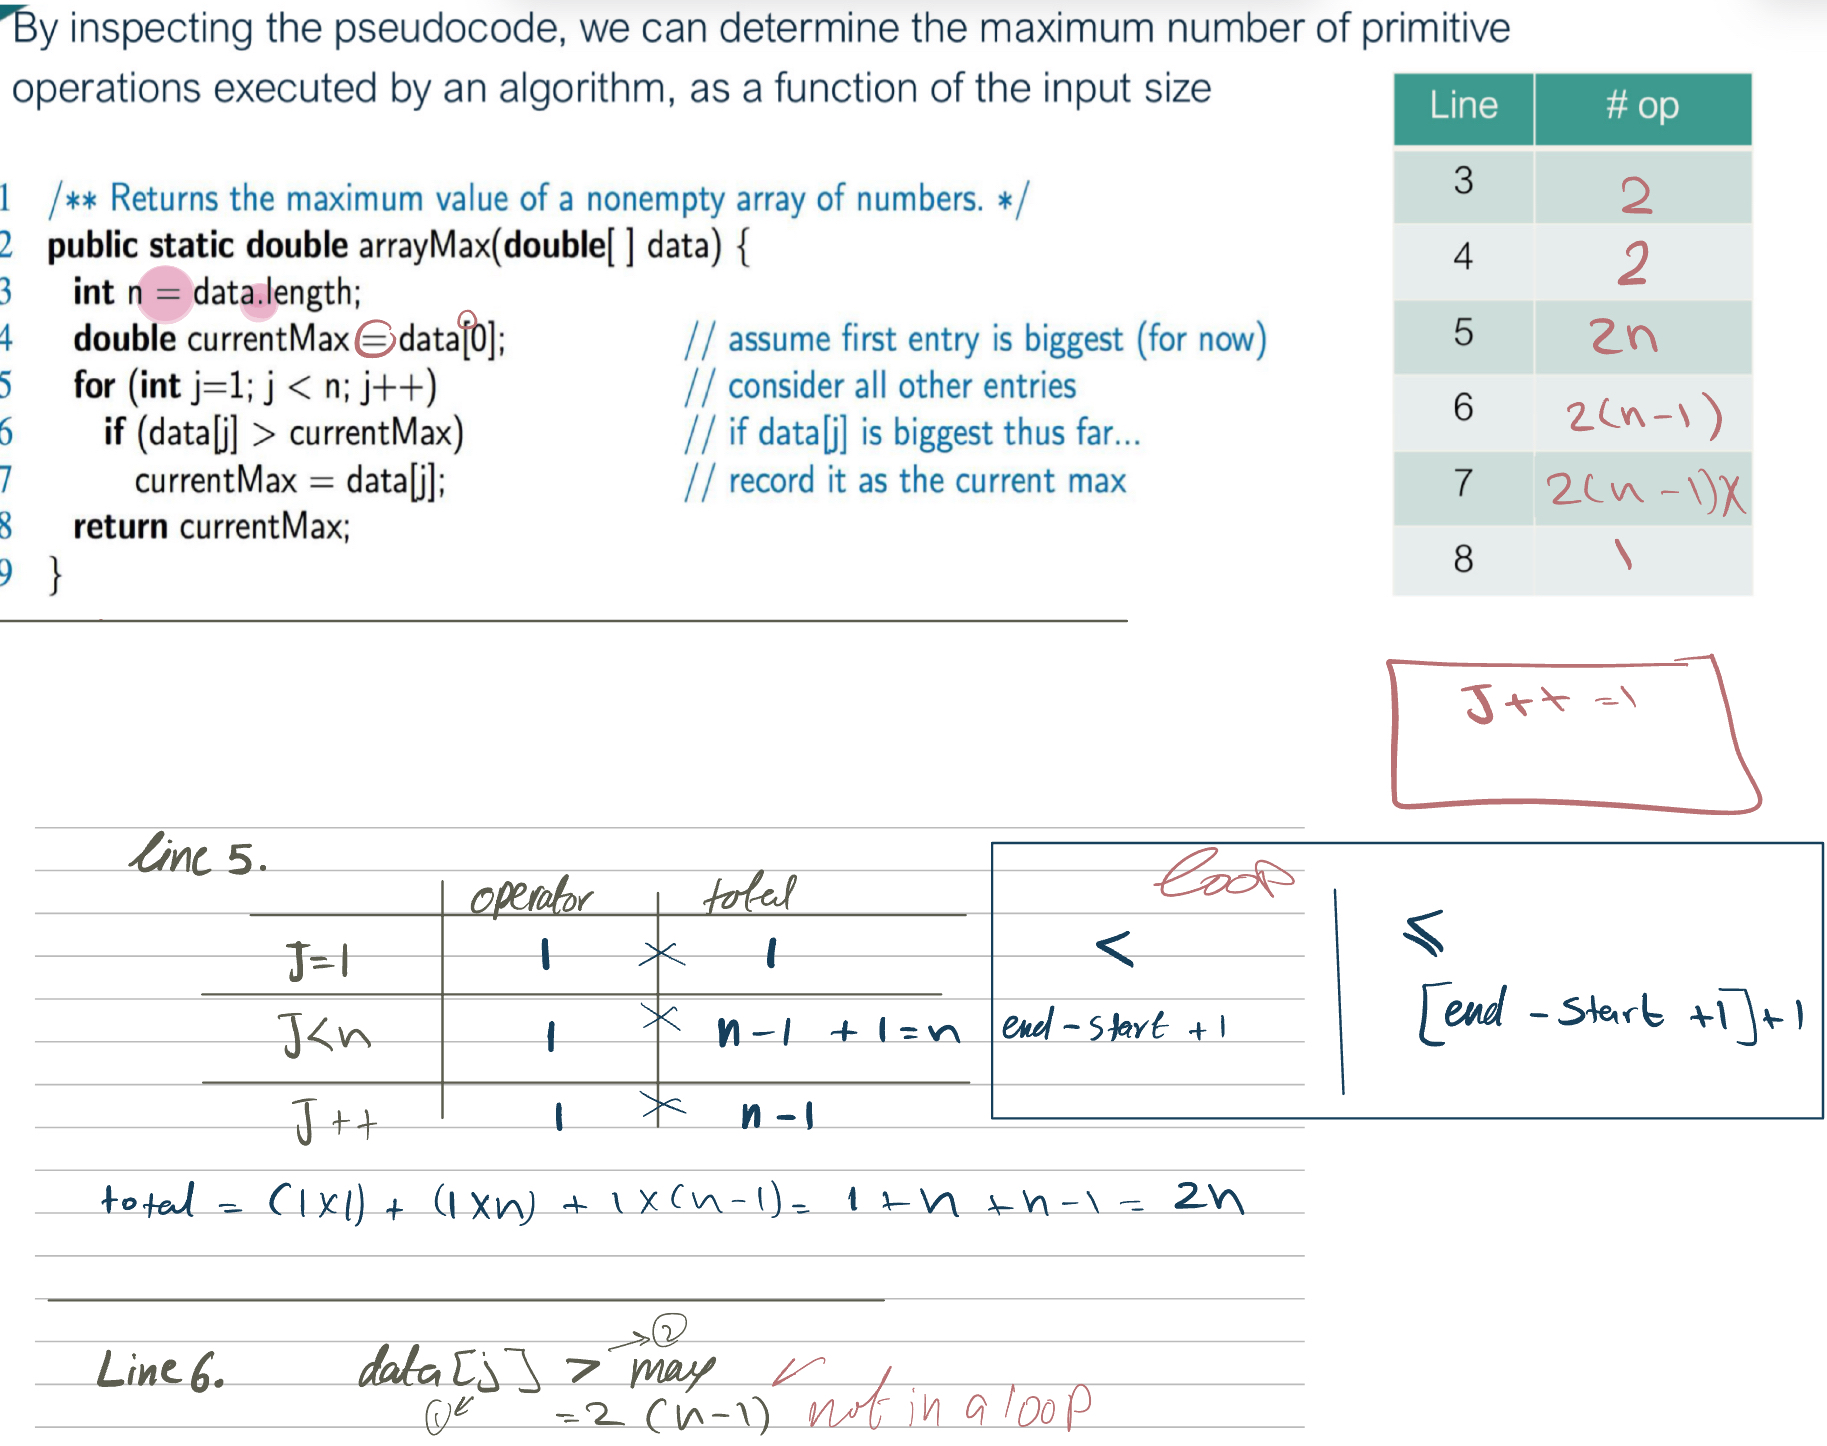 By inspecting the pseudocode, we can determine the maximum number of primitive
operations executed by an algorithm, as a function of the input size
1 /** Returns the maximum value of a nonempty array of numbers. */
2 public static double arrayMax(double[ ] data) {
3 int n = data.length;
4 double currentMax = data[0]; // assume first entry is biggest (for now)
5 for (int j=1; j < n; j++) // consider all other entries
6 if (data[j] > currentMax) // if data[j] is biggest thus far...
7 currentMax = data[j]; // record it as the current max
8 return currentMax;
9 }
Line # op
3 2
4 2
5 2n
6 2(n-1)
7 2(n-1)X
8 1
J++ =1
line 5.
operator total
J=1 1 × 1
J<n 1 × n-1 +1=n
J++ 1 × n-1
loop
< ≤
end-start +1 [end -start +1]+1
total = (1×1) + (1×n) + 1×(n-1)= 1+n +n-1 = 2n
Line 6. data[j] > max → ②
① =2 (n-1) not in a loop